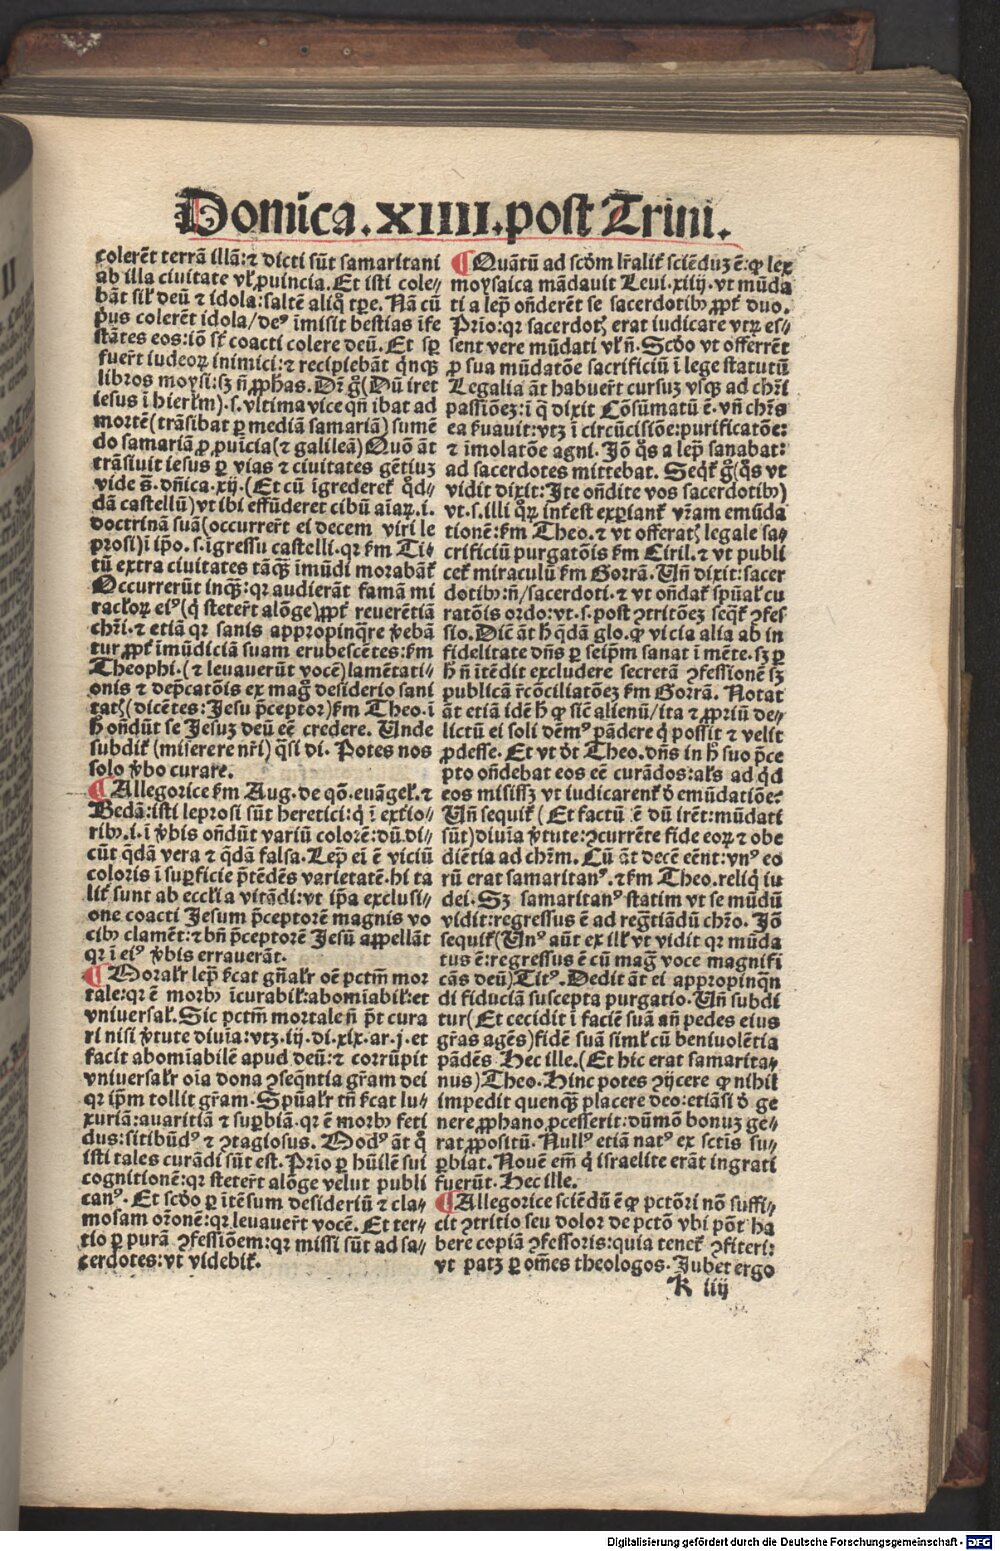 Domīca.XIIII.post Trini.
colerēt terrā illā:⁊ dicti sūt samaritani
ab illa ciuitate vl' ꝓuincia. Et isti cole//
bāt sil' deū ⁊ idola:saltē aliq̄ tꝑe. Nā cū
p̄us colerēt idola/deꝰ īmisit bestias īfe
stātes eos:iō sr̄ coacti colere deū. Et sꝑ
fuer̄t iudeoꝝ inimici:⁊ recipiebāt q̄nqꝫ
libros moysi:sꝫ n̄ ꝓphas. Dr̄ g̊(Dū iret
iesus ī hierl'm).s.vltima vice qn̄ ibat ad
mortē(trāsibat ꝑ mediā samariā) sumē
do samariā ꝓ ꝓuīcia(⁊ galileā)Quō āt
trāsiuit iesus ꝑ vias ⁊ ciuitates gētiuꝫ
vide s̄.dn̄ica.xij.(Et cū īgrederet͛ q̊d//
dā castellū)vt ibi effūderet cibū aīaꝝ.i.
doctrinā suā(occurrer̄t ei decem viri le
prosi)ī ip̄o.s.īgressu castelli.qꝛ ẜm Ti//
tū extra ciuitates tāqꝫ īmūdi morabāt͛
Occurrerūt inqꝫ:qꝛ audierāt famā mi
racl'oꝝ eiꝰ(q̇ steter̄t alōge)ꝓpt͛ reuerētiā
chr̄i.⁊ etiā qꝛ sanis appropinq̄re v̓ebā
tur ꝓpt͛ īmūdiciā suam erubescētes:ẜm
Theophi.(⁊ leuauerūt vocē)lamētati//
onis ⁊ dep̄catōis ex mag̊ desiderio sani
tatꝭ(dicētes:Jesu p̄ceptor)ẜm Theo.ī
h̊ on̄dūt se Jesuꝫ deū eē credere. Unde
subdit͛ (miserere nr̄i) q̄si di. Potes nos
solo v̓bo curare.
¶Allegorice ẜm Aug.de qō.euāgel'.⁊
Bedā:isti leprosi sūt heretici:q̇ ī extio//
ribꝫ.i.ī v̓bis on̄dūt variū colorē:dū di//
cūt q̄dā vera ⁊ q̄dā falsa.Lep̄ ei ē viciū
coloris ī suꝑficie p̄tēdēs varietatē.hi ta
lit͛ sunt ab eccl'ia vitādi:vt ip̄a exclusi//
one coacti Jesum p̄ceptorē magnis vo
cibꝫ clamēt:⁊ bn̄ p̄ceptorē Jesū appellāt
qꝛ ī eiꝰ v̓bis errauerāt.
¶Moral'r lep̄ ẜcat gn̄al'r oē pctm̄ mor
tale:qꝛ ē morbꝫ īcurabil':abomīabil':et
vniuersal'. Sic pctm̄ mortale n̄ p̄t cura
ri nisi v̓tute diuīa:vtꝫ.iij.di.xix.ar.j.et
facit abomīabilē apud deū:⁊ corrūpit
vniuersal'r oīa dona ꝯseq̄ntia gr̄am dei
qꝛ ip̄m tollit gr̄am. Spūal'r tn̄ ẜcat lu//
xuriā:auaritiā ⁊ suꝑbiā.qꝛ ē morbꝫ feti
dus:sitibūdꝰ ⁊ ꝯtagiosus. Modꝰ āt q̊
isti tales curādi sūt est. Prīo ꝑ hūilē sui
cognitionē:qꝛ steter̄t alōge velut publi
canꝰ. Et scd̓o ꝑ ītēsum desideriū ⁊ cla//
mosam or̄onē:qꝛ leuauer̄t vocē. Et ter//
tio ꝑ purā ꝯfessiōem:qꝛ missi sūt ad sa//
cerdotes:vt videbit͛.
¶Quātū ad scd̓m lr̄alit͛ sciēduꝫ ē:ꝙ lex
moysaica mādauit Leui.xiiij.vt mūda
ti a lep̄ on̄derēt se sacerdotibꝫ ꝓpt͛ duo.
Prīo:qꝛ sacerdotꝭ erat iudicare vtꝝ es//
sent vere mūdati vl' n̄. Scd̓o vt offerrēt
ꝓ sua mūdatōe sacrificiū ī lege statutū
Legalia āt habuer̄t cursuꝫ vsqꝫ ad chr̄i
passiōeꝫ:ī q̄ dixit Cōsūmatū ē. Vn̄ chr̄s
ea ẜuauit:vtꝫ ī circūcisiōe:purificatōe:
⁊ īmolatōe agni. Jō q̊s a lep̄ sanabat:
ad sacerdotes mittebat. Seqt͛ g̊(q̊s vt
vidit dixit:Jte on̄dite vos sacerdotibꝫ)
vt.s.illi q̊ꝝ int͛est exꝑiant͛ vr̄am emūda
tionē:ẜm Theo.⁊ vt offeratꝭ legale sa//
crificiū purgatōis ẜm Ciril.⁊ vt publi
cet͛ miraculū ẜm Gorrā. Un̄ dixit:sacer
dotibꝫ:n̄/sacerdoti.⁊ vt on̄dat͛ spūal' cu
ratōis ordo:vt.s.post ꝯtritōeꝫ seqt͛ ꝯfes
sio. Dic̄ āt h̊ q̄dā glo.ꝙ vicia alia ab in
fidelitate dn̄s ꝑ seip̄m sanat ī mēte.sꝫ ꝑ
h̊ n̄ ītēdit excludere secretā ꝯfessionē sꝫ
publicā rec̄ōciliatōeꝫ ẜm Gorrā. Notat
āt etiā idē h̊ ꝙ sic̄ alienū/ita ⁊ ꝓpriū de//
lictū ei soli dēmꝰ pādere q̇ possit ⁊ velit
ꝓdesse. Et vt d̓t Theo.dn̄s in h̊ suo p̄ce
pto on̄debat eos eē curādos:al's ad q̊d
eos misissꝫ vt iudicarent͛ d̓ emūdatiōe:
Un̄ sequit͛ (Et factū ē dū irēt:mūdati
sūt)diuīa v̓tute:ꝯcurrēte fide eoꝝ ⁊ obe
diētia ad chr̄m. Cū āt decē eēnt:vnꝰ eo
rū erat samaritanꝰ.⁊ ẜm Theo.reliq̇ iu
dei. Sꝫ samaritanꝰ statim vt se mūdū
vidit:regressus ē ad regr̄tiādū chr̄o. Jō
sequit͛(Unꝰ aūt ex ill' vt vidit qꝛ mūda
tus ē:regressus ē cū mag̊ voce magnifi
cās deū)Titꝰ. Dedit āt ei appropinq̄n
di fiduciā suscepta purgatio. Un̄ subdi
tur(Et cecidit ī faciē suā an̄ pedes eius
gr̄as agēs)fidē suā siml' cū beniuolētia
pādēs Hec ille.(Et hic erat samarita//
nus)Theo. Hinc potes ꝯijcere ꝙ nihil
impedit quenqꝫ placere deo:etiāsi d̓ ge
nere ꝓphano ꝓcesserit:dūmō bonuꝫ ge//
rat ꝓpositū. Nullꝰ etiā natꝰ ex sctīs su//
ꝑbiat. Nouē em̄ q̇ israelite erāt ingrati
fuerūt. Hec ille.
¶Allegorice sciēdū ē ꝙ pctōri nō suffi//
cit ꝯtritio seu dolor de pctō vbi pōt ha
bere copiā ꝯfessoris:quia tenet͛ ꝯfiteri:
vt patꝫ ꝑ om̄es theologos. Jubet ergo
K iij
Digitalisierung gefördert durch die Deutsche Forschungsgemeinschaft - DFG